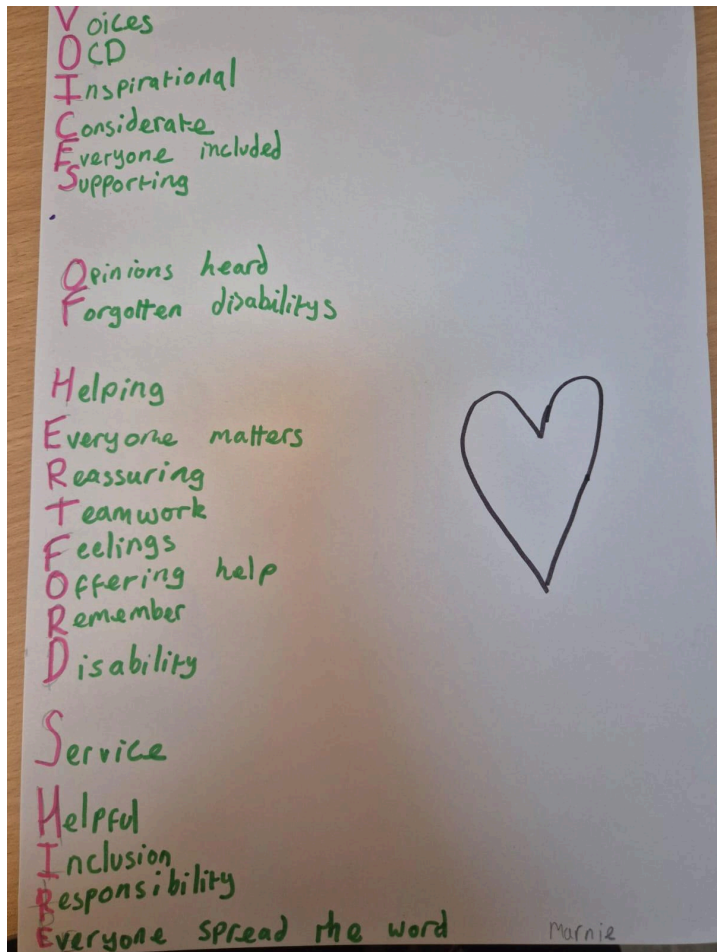 Voices
OCD
Inspirational
Considerate
Everyone included
Supporting
Opinions heard
Forgotten disabilitys
Helping
Everyone matters
Reassuring
Teamwork
Feelings
Offering help
Remember
Disability
Service
Helpful
Inclusion
Responsibility
Everyone spread the word
Marnie